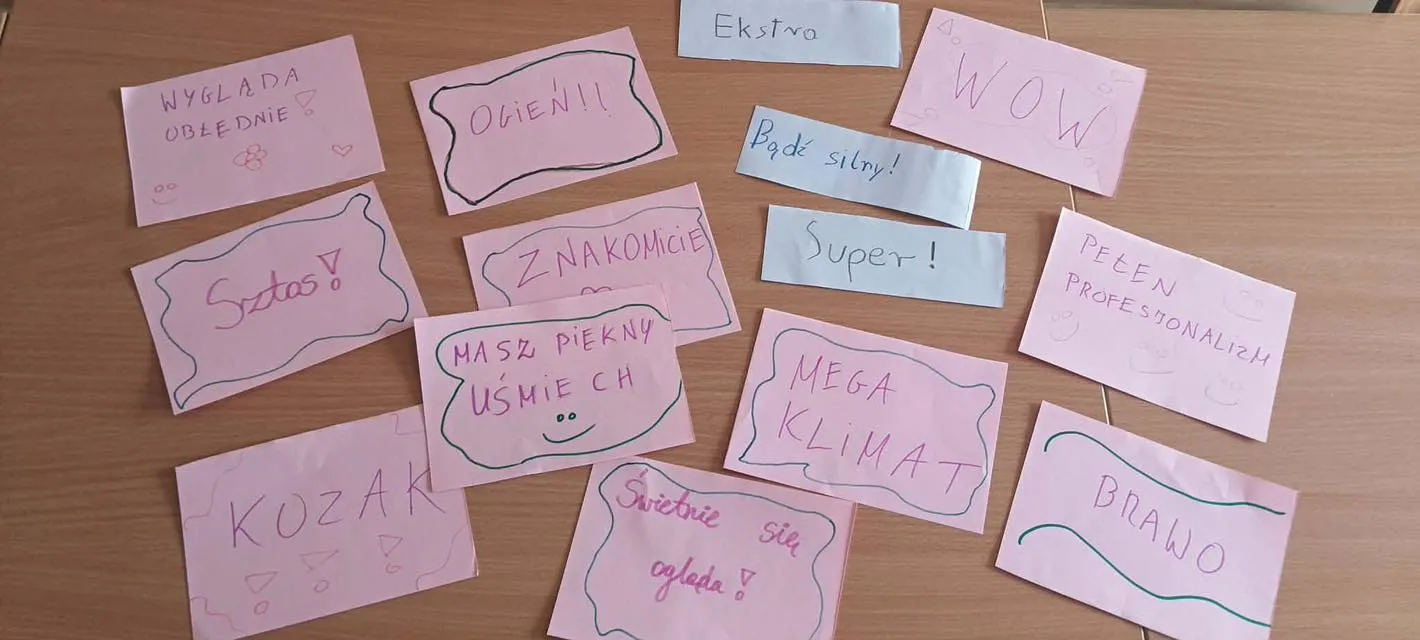 Ekstra
WYGLĄDA
OBŁĘDNIE!
OGIEŃ!!
WOW
Bądź silny!
Super!
Sztos!
ZNAKOMICIE
PEŁEN
PROFESJONALIZM
MASZ PIĘKNY
UŚMIECH
MEGA
KLIMAT
KOZAK
!!!
Świetnie się
ogląda!
BRAWO